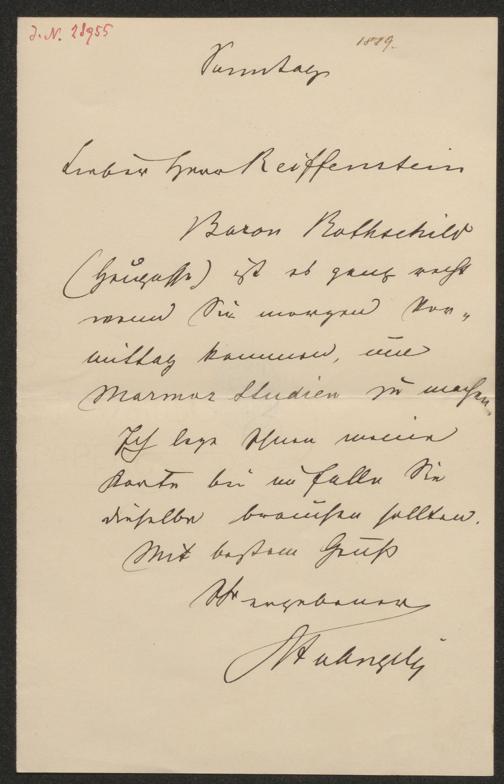 J. N. 28955
1889.
Sonntag
Lieber Herr Reiffenstein
Baron Rothschild
(Heugasse) ist es ganz recht
wenn Sie morgen Vor-
mittag kommen, um
Marmor Studien zu machen.
Ich lege Ihnen meine
Karte bei im Falle Sie
dieselbe brauchen sollten.
Mit bestem Gruß
Ihr ergebener